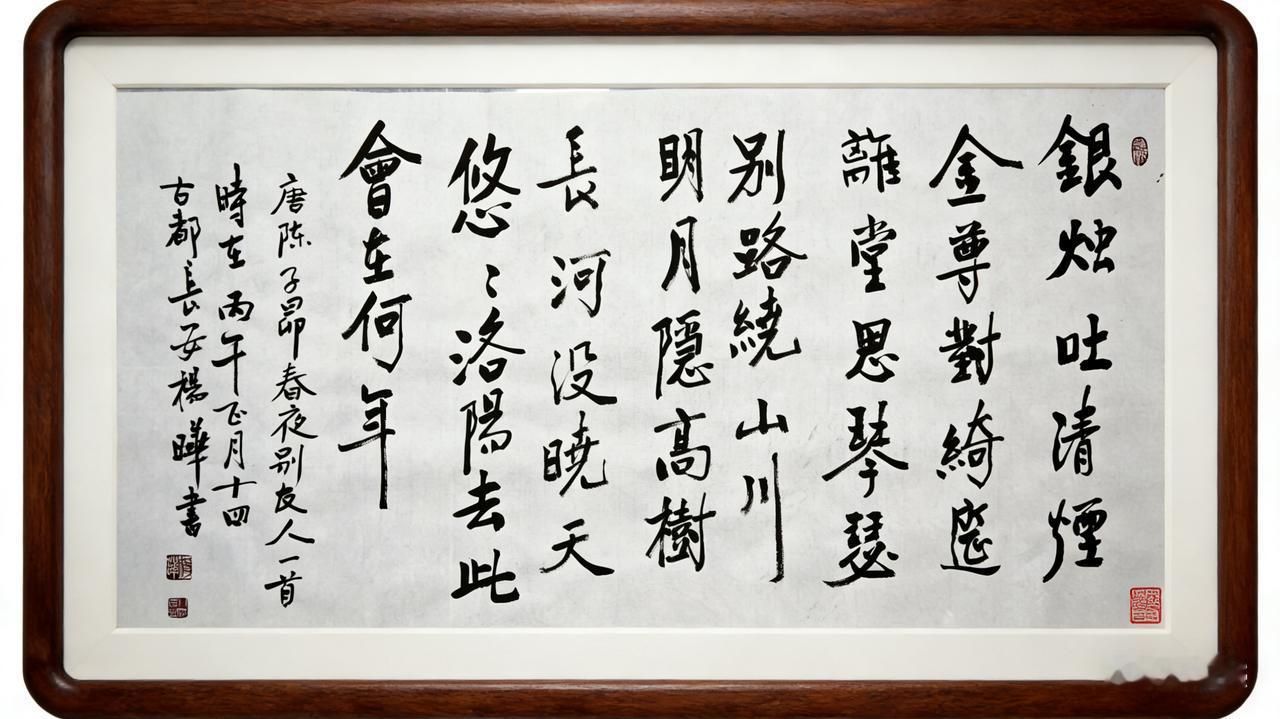 銀烛吐清煙
金尊對綺筵
離堂思琴瑟
别路繞山川
明月隱高樹
長河没曉天
悠〻洛陽去此
會在何年
唐陈子昂春夜别友人一首
時在丙午正月十四
古都長安楊曄書